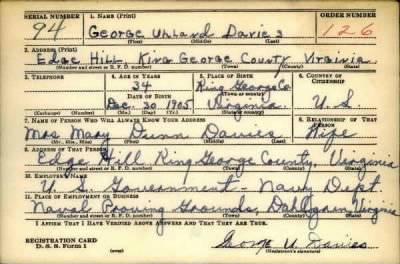 SERIAL NUMBER 1. NAME (Print) ORDER NUMBER
94 George Uhland Davies 126
(First) (Middle) (Last)
2. ADDRESS (Print)
Edge Hill, King George County, Virginia.
(Number and street or R. F. D. number) (Town) (County) (State)
3. TELEPHONE 4. AGE IN YEARS 5. PLACE OF BIRTH 6. COUNTRY OF CITIZENSHIP
34 King George Co.
DATE OF BIRTH (Town or county)
Dec. 30 1905 Virginia. U. S.
(Exchange) (Number) (Mo.) (Day) (Yr.) (State or country)
7. NAME OF PERSON WHO WILL ALWAYS KNOW YOUR ADDRESS 8. RELATIONSHIP OF THAT PERSON
Mrs Mary Dunn Davies Wife
(Mr., Mrs., Miss) (First) (Middle) (Last)
9. ADDRESS OF THAT PERSON
Edge Hill King George County, Virginia
(Number and street or R. F. D. number) (Town) (County) (State)
10. EMPLOYER'S NAME
U. S. Government - Navy Dept.
11. PLACE OF EMPLOYMENT OR BUSINESS
Naval Proving Grounds, Dahlgren, Virginia
(Number and street or R. F. D. number) (Town) (County) (State)
I AFFIRM THAT I HAVE VERIFIED ABOVE ANSWERS AND THAT THEY ARE TRUE.
REGISTRATION CARD
D. S. S. Form 1 George U. Davies
(Registrant's signature)